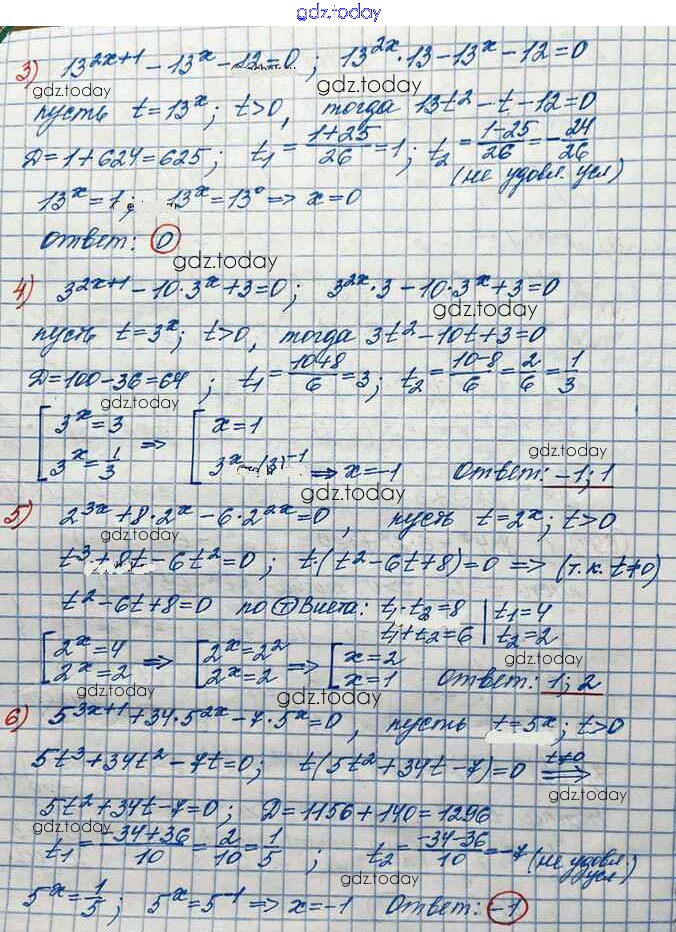 gdz.today
3) 13^(2x+1) - 13^x - 12 = 0; 13^(2x)·13 - 13^x - 12 = 0
gdz.today gdz.today
пусть t = 13^x; t>0, тогда 13t² - t - 12 = 0
D = 1 + 624 = 625; t₁ = (1+25)/26 = 1; t₂ = (1-25)/26 = -24/26
gdz.today (не удовл. усл)
13^x = 1; 13^x = 13⁰ => x = 0
Ответ: 0
gdz.today
4) 3^(2x+1) - 10·3^x + 3 = 0; 3^(2x)·3 - 10·3^x + 3 = 0
gdz.today
пусть t = 3^x; t>0, тогда 3t² - 10t + 3 = 0
D = 100 - 36 = 64; t₁ = (10+8)/6 = 3; t₂ = (10-8)/6 = 2/6 = 1/3
gdz.today
[3^x = 3 => [x = 1
gdz.today
3^x = 1/3 3^x = (3)^(-1) => x = -1 Ответ: -1; 1
gdz.today
5) 2^(3x) + 8·2^x - 6·2^(2x) = 0, пусть t = 2^x; t>0
gdz.today
t³ + 8t - 6t² = 0; t·(t² - 6t + 8) = 0 => (т.к. t≠0)
t² - 6t + 8 = 0 по т Виета: t₁·t₂ = 8 | t₁ = 4
t₁ + t₂ = 6 | t₂ = 2
[2^x = 4 => [2^x = 2² => [x = 2
gdz.today
2^x = 2 2^x = 2 x = 1 Ответ: 1; 2
gdz.today gdz.today
6) 5^(3x+1) + 34·5^(2x) - 7·5^x = 0, пусть t = 5^x; t>0
5t³ + 34t² - 7t = 0; t(5t² + 34t - 7) = 0 =(t≠0)=>
gdz.today
5t² + 34t - 7 = 0; D = 1156 + 140 = 1296
gdz.today
t₁ = (-34+36)/10 = 2/10 = 1/5; t₂ = (-34-36)/10 = -7 (не удовл. усл)
gdz.today
5^x = 1/5; 5^x = 5^(-1) => x = -1 Ответ: -1